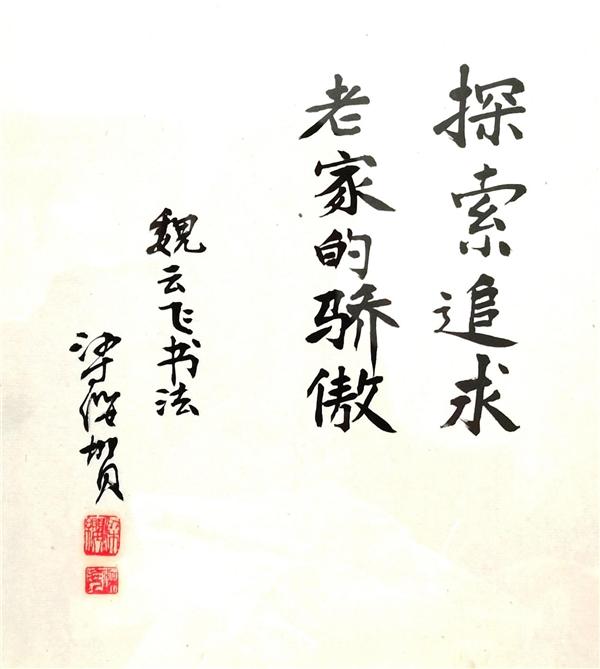 探索追求
老家的骄傲
魏云飞书法
贺